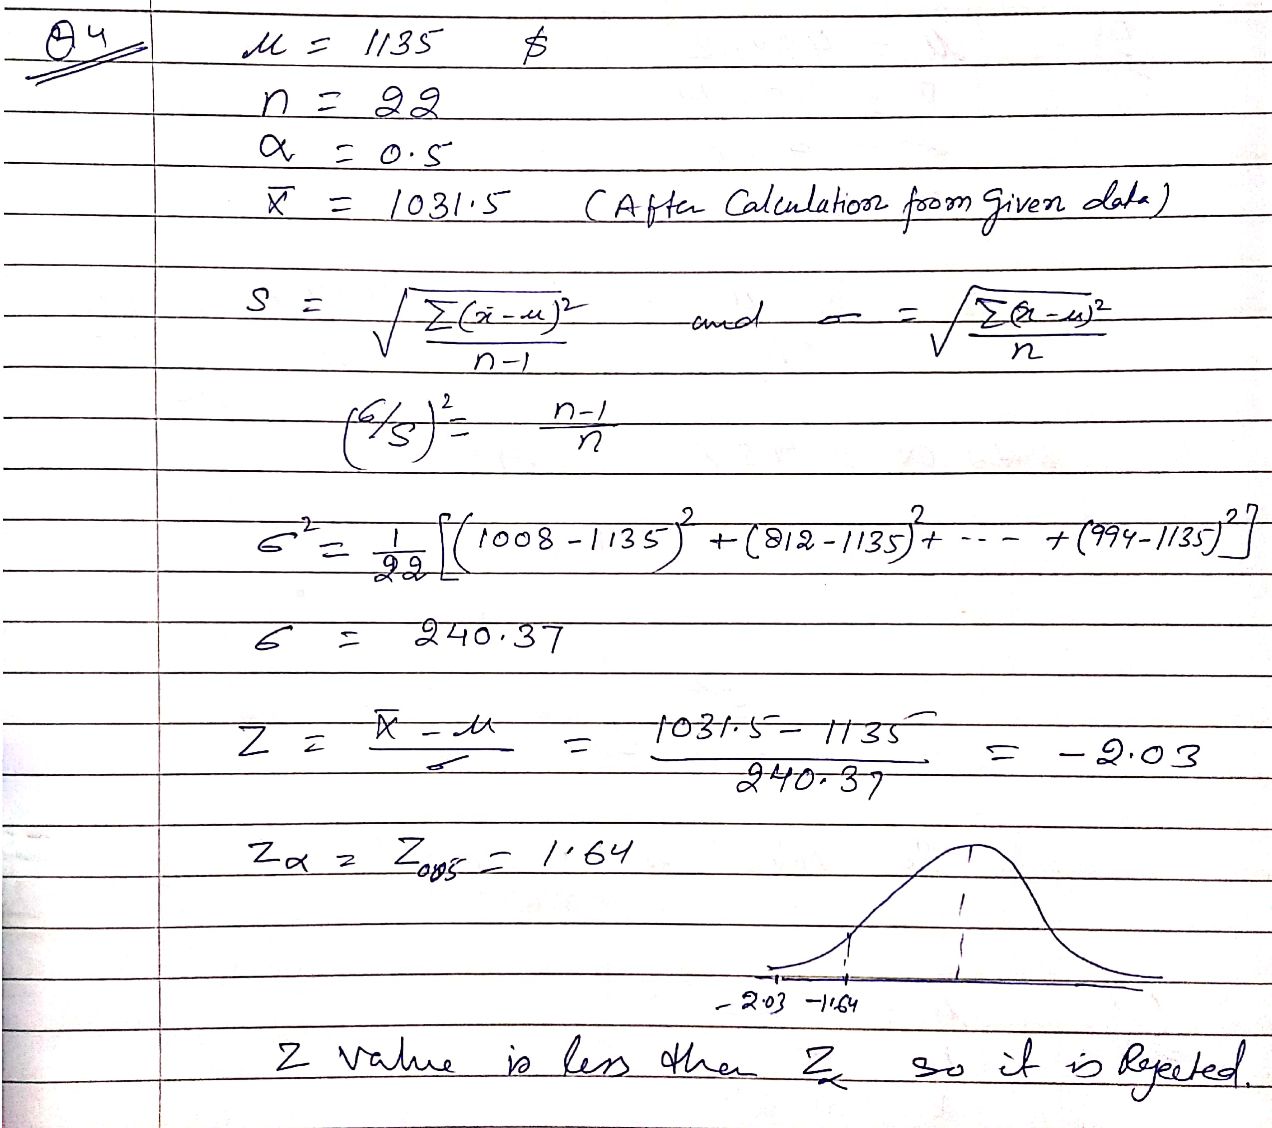 Q4 μ = 1135 $
n = 22
α = 0.5
x̄ = 1031.5 (After Calculation from given data)
S = √(Σ(x-μ)²/(n-1)) and σ = √(Σ(x-μ)²/n)
(σ/s)² = (n-1)/n
σ² = 1/22 [(1008-1135)² + (812-1135)² + --- + (994-1135)²]
σ = 240.37
Z = (x̄ - μ)/σ = (1031.5 - 1135)/240.37 = -2.03
Zα = Z0.05 = 1.64
-2.03 -1.64
Z value is less than Zα so it is Rejected.